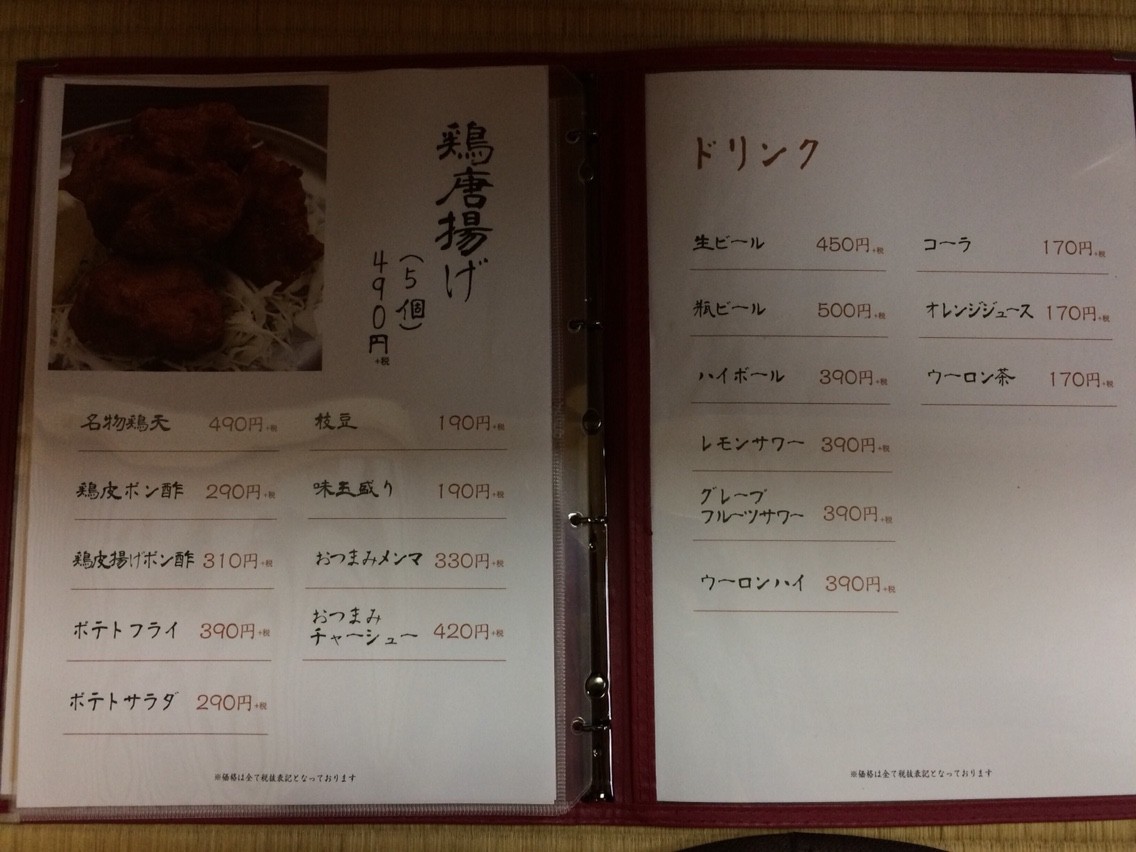 鶏唐揚げ
(5個)
490円+税
名物鶏天 490円+税
鶏皮ポン酢 290円+税
鶏皮揚げポン酢 310円+税
ポテトフライ 390円+税
ポテトサラダ 290円+税
枝豆 190円+税
味玉盛り 190円+税
おつまみメンマ 330円+税
おつまみ
チャーシュー 420円+税
※価格は全て税抜表記となっております
ドリンク
生ビール 450円+税
瓶ビール 500円+税
ハイボール 390円+税
レモンサワー 390円+税
グレープ
フルーツサワー 390円+税
ウーロンハイ 390円+税
コーラ 170円+税
オレンジジュース 170円+税
ウーロン茶 170円+税
※価格は全て税抜表記となっております